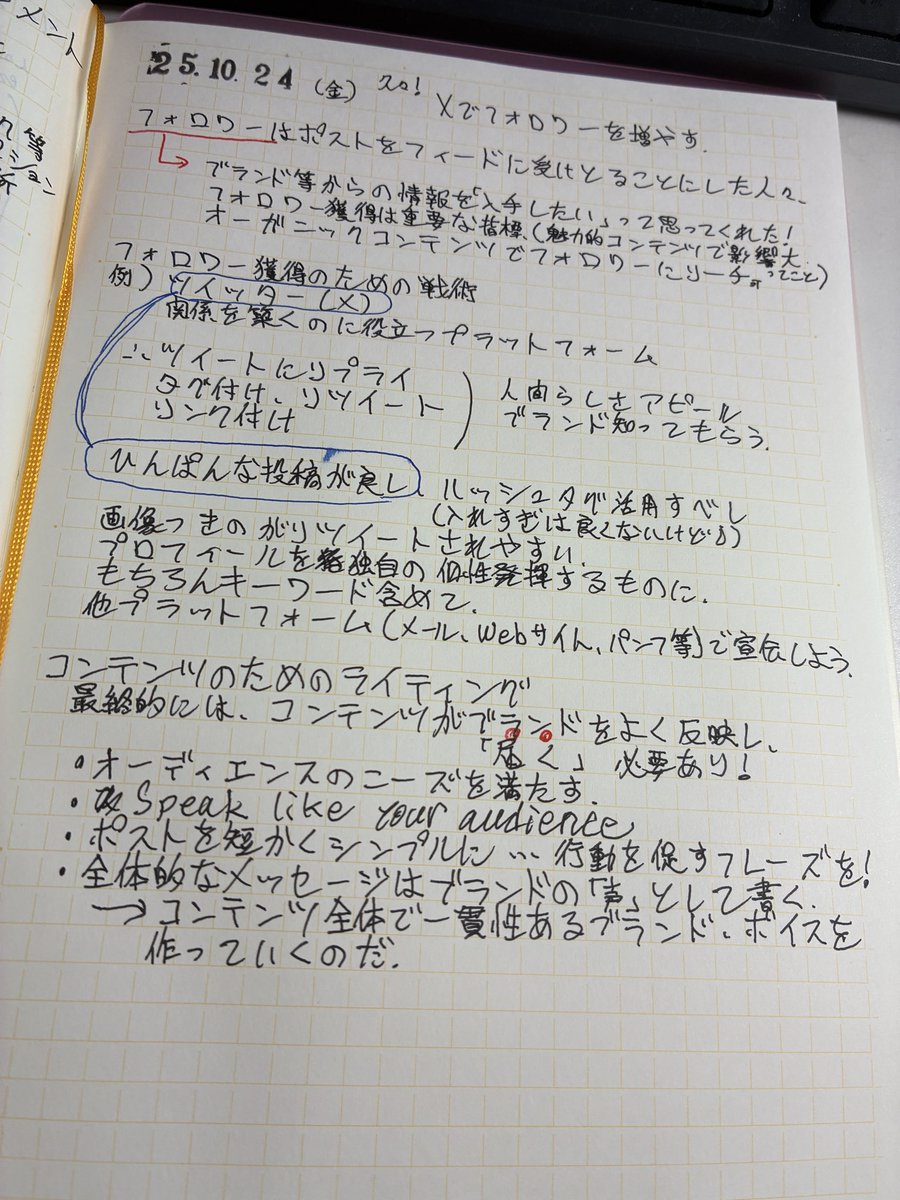 メント
等
ション
25.10.24 (金) Xでフォロワーを増やす.
フォロワーはポストをフィードに受けとることにした人々.
ブランド等からの情報を「入手したい」って思ってくれた!
フォロワー獲得は重要な指標.(魅力的コンテンツで影響大.
オーガニックコンテンツでフォロワーにリーチ ってこと)
フォロワー獲得のための戦術
例) ツイッター(X)
関係を築くのに役立つプラットフォーム
∴ツイートにリプライ
タグ付け、リツイート
リンク付け
人間らしさアピール
ブランド知ってもらう.
ひんぱんな投稿が良し、ハッシュタグ活用すべし
(入れすぎは良くないけどね)
画像つきのがリツイートされやすい
プロフィールを独自の個性発揮するものに.
もちろんキーワード含めて.
他プラットフォーム(メール、Webサイト、パンフ等)で宣伝しよう.
コンテンツのためのライティング
最終的には、コンテンツがブランドをよく反映し、
「届く」 必要あり!
・オーディエンスのニーズを満たす.
・Speak like your audience
・ポストを短かくシンプルに…行動を促すフレーズを!
・全体的なメッセージはブランドの「声」として書く.
→コンテンツ全体で一貫性あるブランド・ボイスを
作っていくのだ.